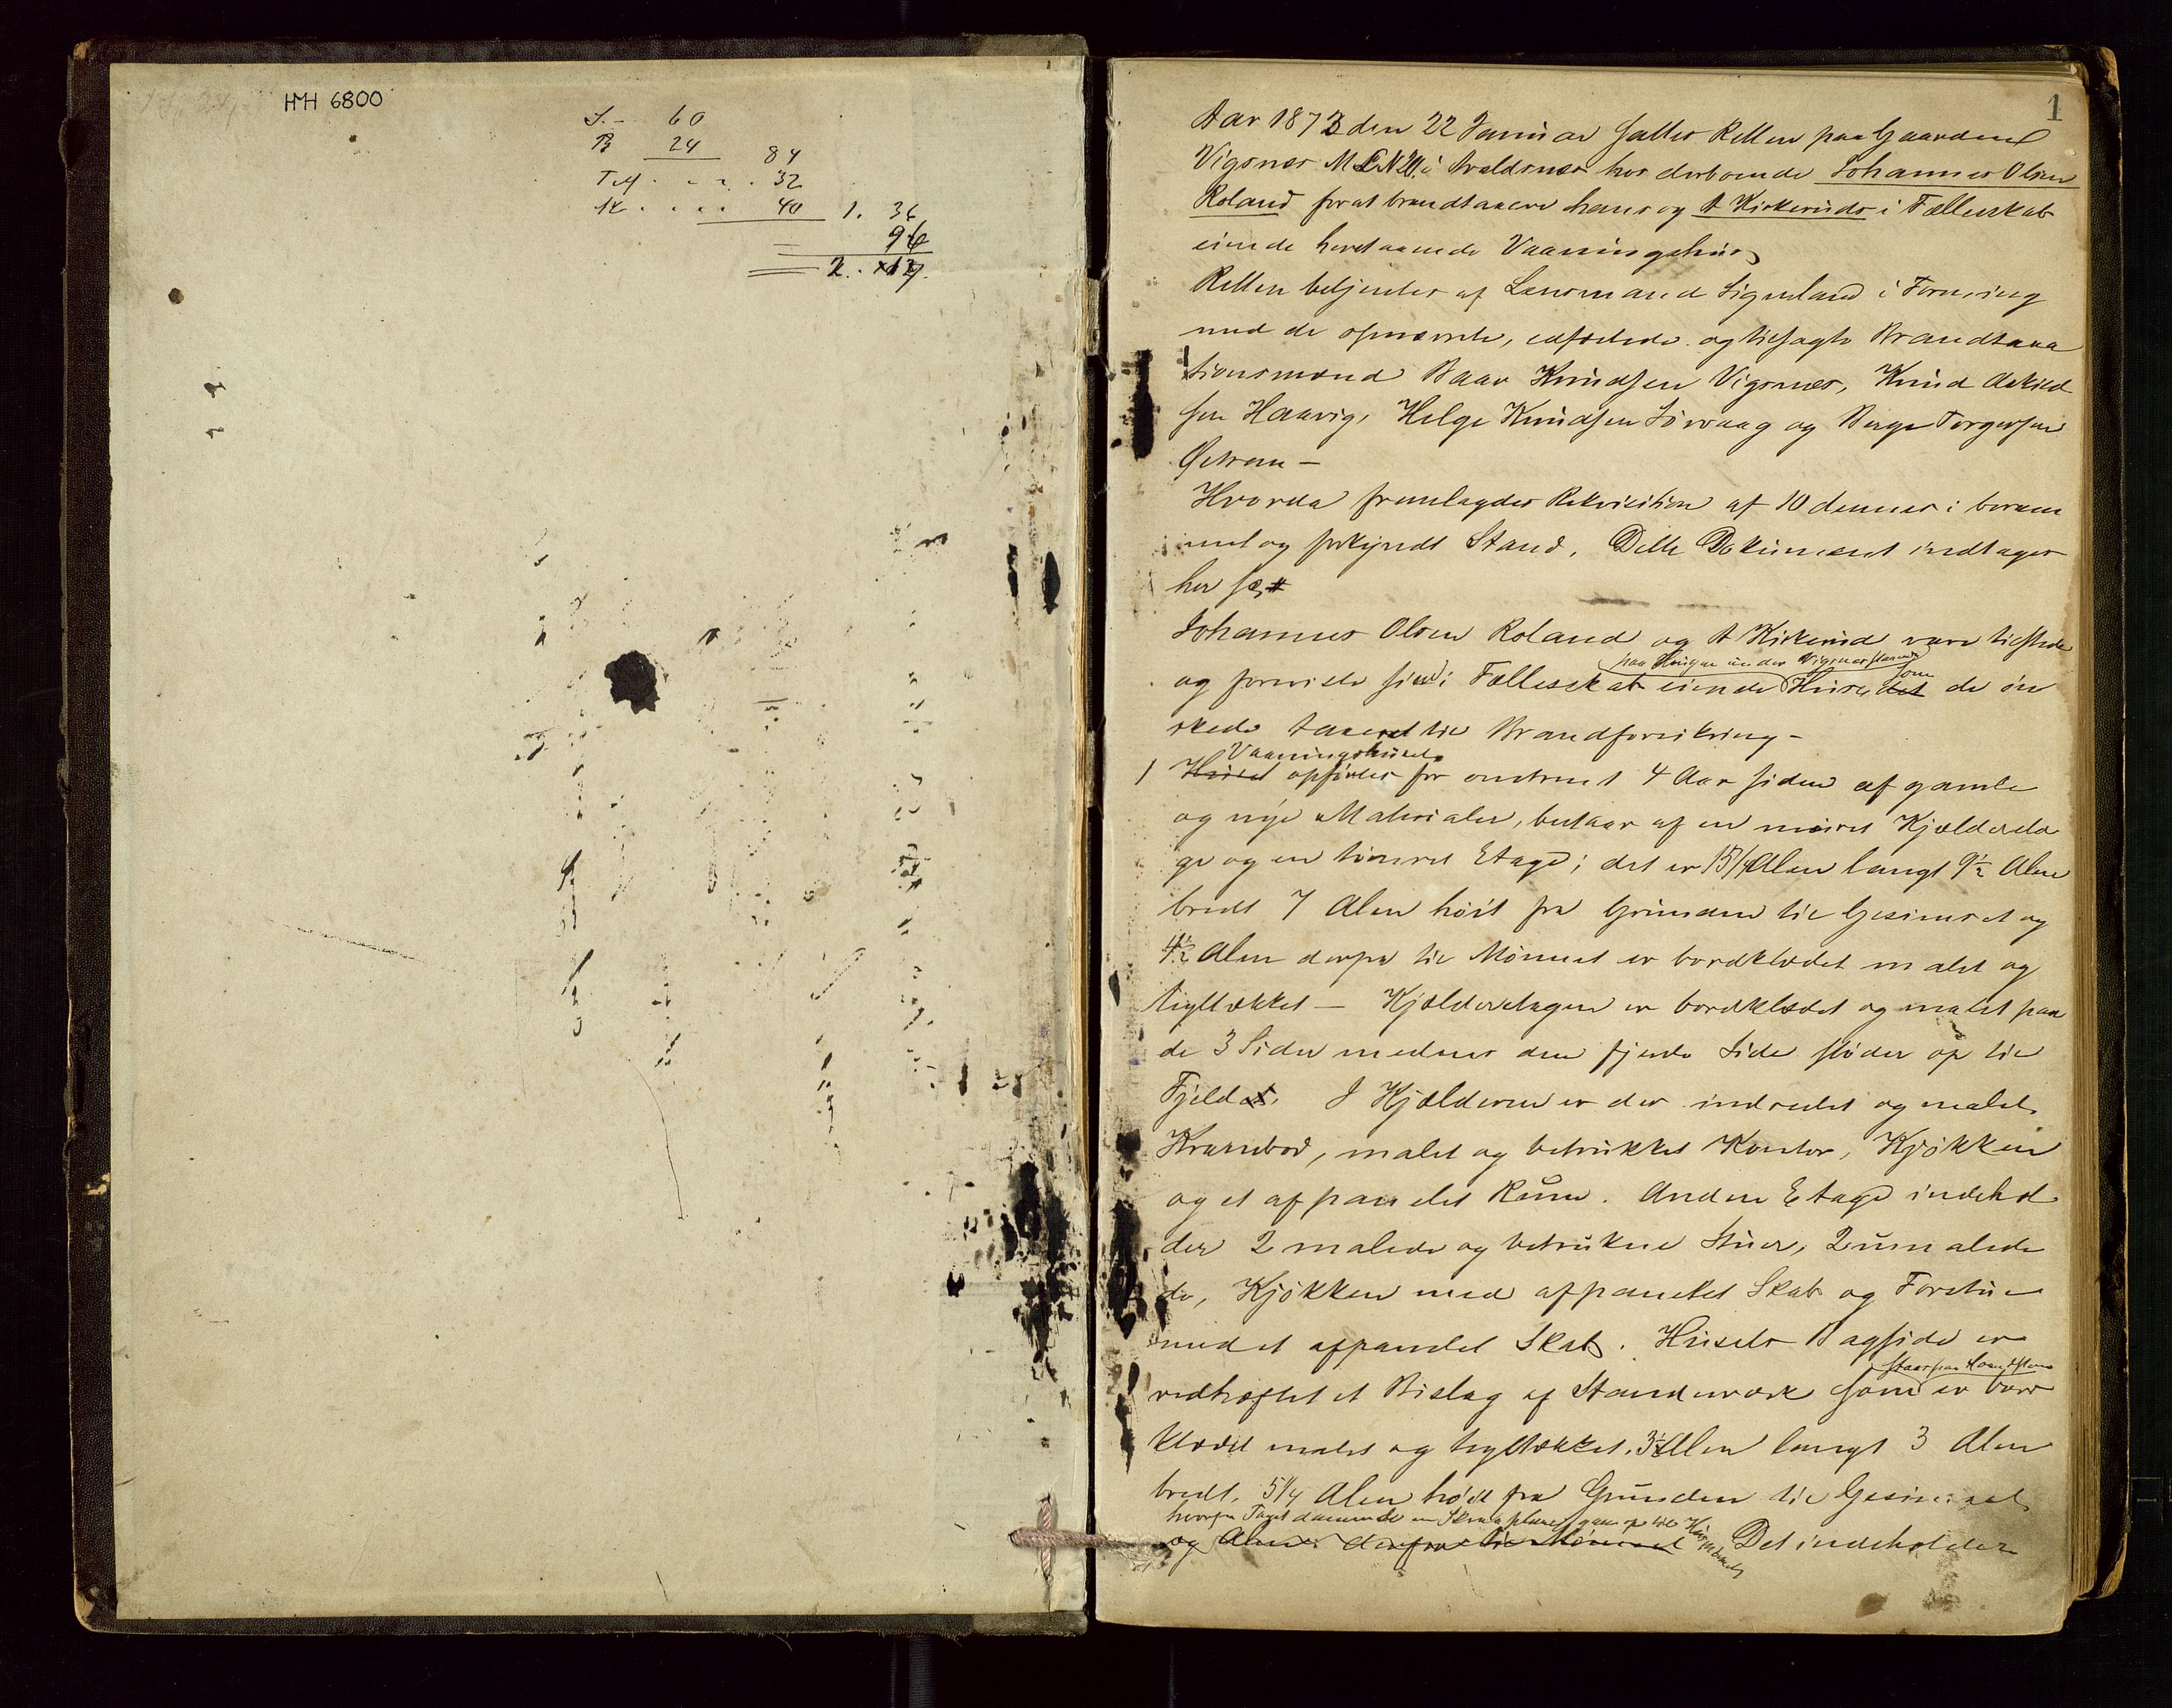 HMH 6800
S. - 60
B 24 84
Tell . . . . 32
K . . . . 40 1. 36
96
2.
1
Aar 1873 den 22 Januar sattes Retten paa Gaarden
Vigsnes M L N 20. i Avaldsnes hos derboende Johannes Olsen
Roland for at brandtaxere hans og A Kirkeruds i Fællesskab
eiende herstaaende Vaaningshus
Retten betjentes af Lensmand Signeland i Forening
med de opnævnte, edfæstede og tilsagte Brandtaxa
tionsmænd Baar Knudsen Vigsnes, Knud Askild
sen Haavig, Helge Knudsen Sørvaag og Børge Torgersen
Østrem -
Hvorda fremlagdes Rekvisition af 10 dennes i beram
met og forkyndt Stand. Dette Dokument indtages
her saa
Johannes Olsen Roland og A Kirkerud vare tilstede
paa Haugen under Vigsnes staaende
og foreviste sin i Fællesskab eiende Huse det som de øn
skede taxeret til Brandforsikring -
Vaaningshuset
1 Huset opførtes for omtrent 4 Aar siden af gamle
og nye Materialer, bestaar af en muret Kjældereta
ge og en tømret Etage; det er 15 1/4 Alen langt 9 1/2 Alen
bredt 7 Alen høit fra Grunden til Gesimset og
4 1/2 Alen derfra til Mønnet er bordklædet malet og
tegltækket - Kjælderetagen er bordklædet og malet paa
de 3 Sider medens den fjerde Side støder op til
Fjeldet. I Kjælderen er der indredet og malet
Krambod, malet og betrukket Kontor, Kjøkken
og et afpanelet Rum. Anden Etage indehol
der 2 malede og betrukne Stuer, 2 umalede
do, Kjøkken med afpanelet Skab og Forstue
med et afpanelet Skab. Husets Bagside er
staar paa
vedhæftet et Bislag af Standerværk som er bord
klædt malet og tegltækket. 3 1/2 Alen langt 3 Alen
bredt, 5 1/4 Alen høit fra Grunden til Gesimset
hvorfra Taget dannende en Skraaplan gaar op til
og Alen derfra til Mønnet Det indeholder